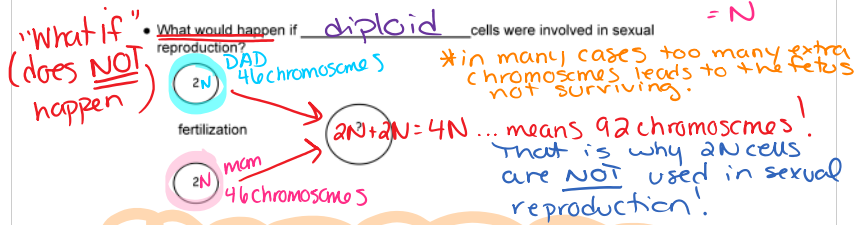 = N
"What if"
(does NOT
happen)
• What would happen if diploid cells were involved in sexual
reproduction?
2N
DAD
46 chromosomes
*in many cases too many extra
chromosomes leads to the fetus
not surviving.
fertilization
2N+2N=4N ... means 92 chromosomes!
That is why 2N cells
are NOT used in sexual
reproduction!
2N
mom
46 chromosomes